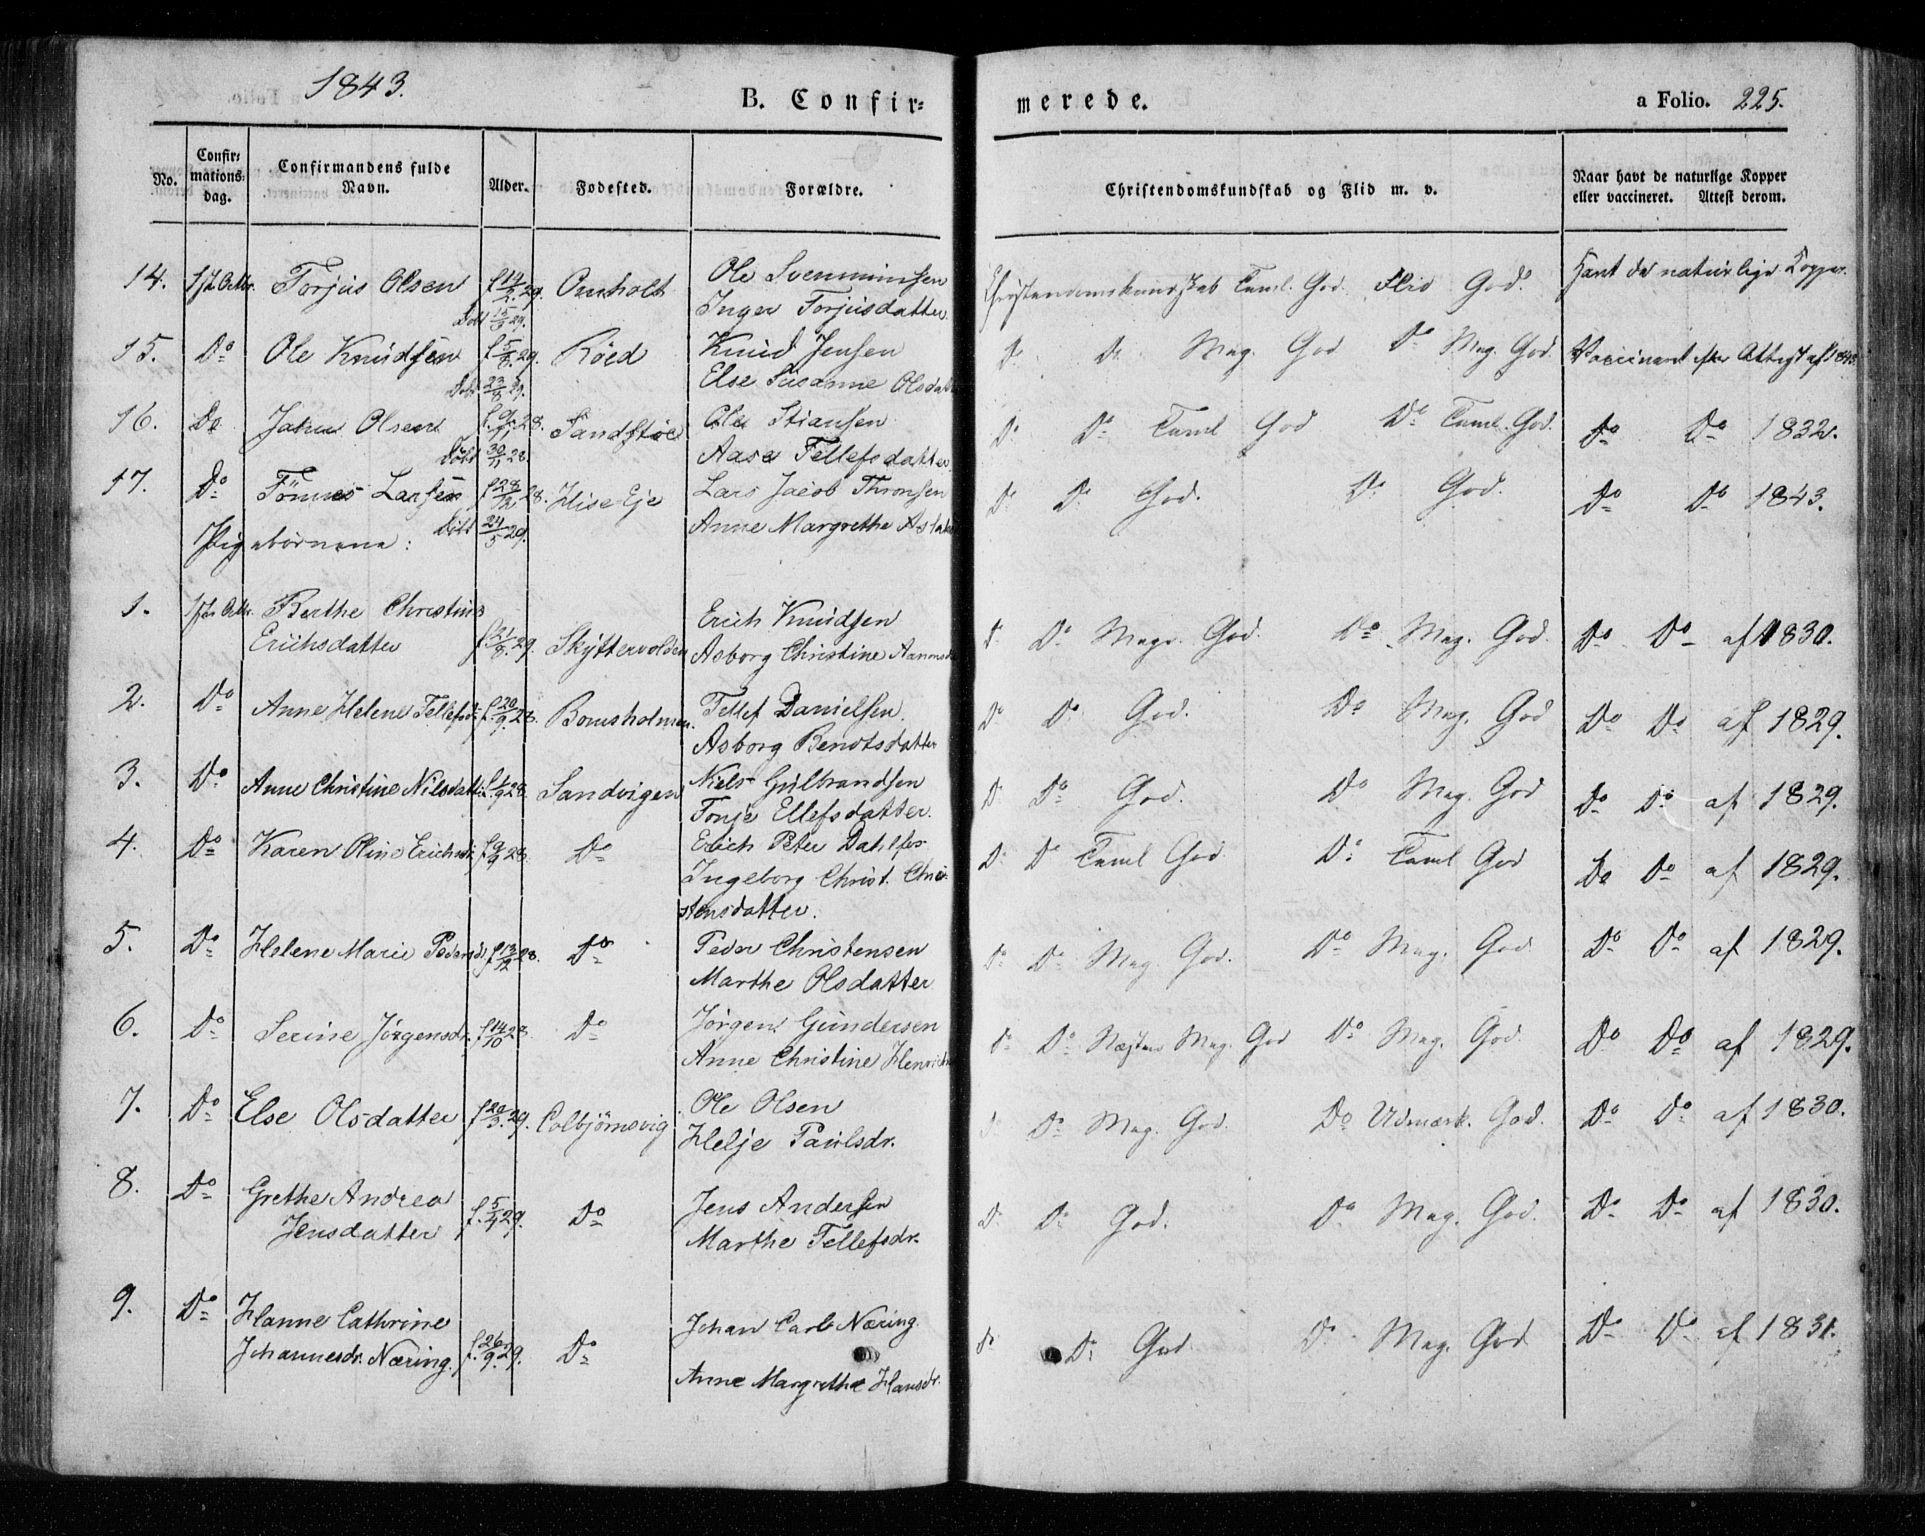 1843.
B. Confir=
merede.
a Folio. 225.
No.
Confir=
mations=
dag.
Confirmandens fulde
Navn.
Alder.
Fødested.
Forældre.
Christendomskundskab og Flid m. v.
Naar havt de naturlige Kopper
eller vaccineret. Attest derom.
14. 1ste Octbr. Torjus Olsen f 14/2 29. Omholt Ole Svenningsen Christendomskundskab Taml. God Flid God. Havt de naturlige Kopper.
Døbt 15/3 29. Inger Torjusdatter
15. Do Ole Knudsen f 5/8 29. Röed Knud Jensen Do Do Meg. God Do Meg. God. Vaccineret efter Attest af 1843
Døbt 23/8 29. Else Susanne Olsdatter
16. Do Olsen f. 9/11 28. Ole Stiansen Do Do Taml God Do Taml. God. Do Do 1832.
Døbt 30/11 28. Aase Tellefsdatter
17. Do Tönnes Larsen f 28/12 28. Hise Eje Lars Jacob Thronsen Do Do God. Do God. Do Do 1843.
Døbt 24/5 29. Anne Margrethe
Pigebørnene:
1. 1ste Octbr. Berthe Christine Erich Knudsen
Erichsdatter f 21/8 29. Skyttervolden Asborg Christine Do Do Meget God. Do Meg. God. Do Do af 1830.
2. Do Anne Helene Tellefsdr. f. 20/9 28. Bomsholmen. Tellef Danielsen. Do Do God. Do Meg. God Do Do af 1829.
Asborg Bentsdatter
3. Do Anne Christine Nilsdatter f. 1/9 28. Sandvigen Niels Gulbrandsen Do Do God. Do Meg. God Do Do af 1829.
Tonje Ellefsdatter.
4. Do Karen Oline Erichsdr. f 9/9 28. Do Erich Peter Do Do Taml God Do Taml God Do Do af 1829.
Ingeborg Christ. Chri-
stensdatter.
5. Do Helene Marie Pedersd. f 13/12 28. Do Peder Christensen Do Do Meg. God. Do Meg. God Do Do af 1829.
Marthe Olsdatter
6. Do Serine Jörgensdr. f 14/10 28. Do Jörgen Gundersen Do Do Næsten Meg. God Do Meg. God. Do Do af 1829.
Anne Christine
7. Do Else Olsdatter f 20/3. 29. Colbjörnsvig Ole Olsen Do Do Meg. God. Do Udmærk. God. Do Do af 1830.
Helje Paulsdr.
8. Do Grethe Andrea Jens Andersen
Jensdatter f. 5/4 29. Do Marthe Tellefsdr. Do Do God. Do Meg. God. Do Do af 1830.
9. Do Hanne Cathrine Johan Carl Næring
Johannesdr. Næring. f. 26/9. 29. Do Anne Margrethe Hansdr. Do Do God. Do Meg. God Do Do af 1831.